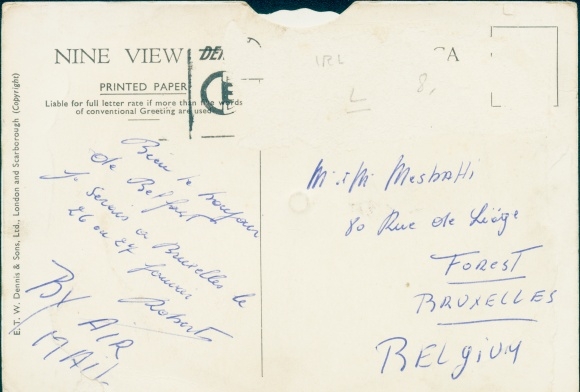 NINE VIEW
PRINTED PAPER
Liable for full letter rate if more than five words
of conventional Greeting are used
E. T. W. Dennis & Sons, Ltd., London and Scarborough (Copyright)
IRL
L 8,
Bien le bonjour
de Belfast
Je serais a Bruxelles le
26 ou 27 janvier
Robert
By AIR
MAIL
M. et M Mesbahi
80 Rue de Liége
FOREST
BRUXELLES
BELGIUM